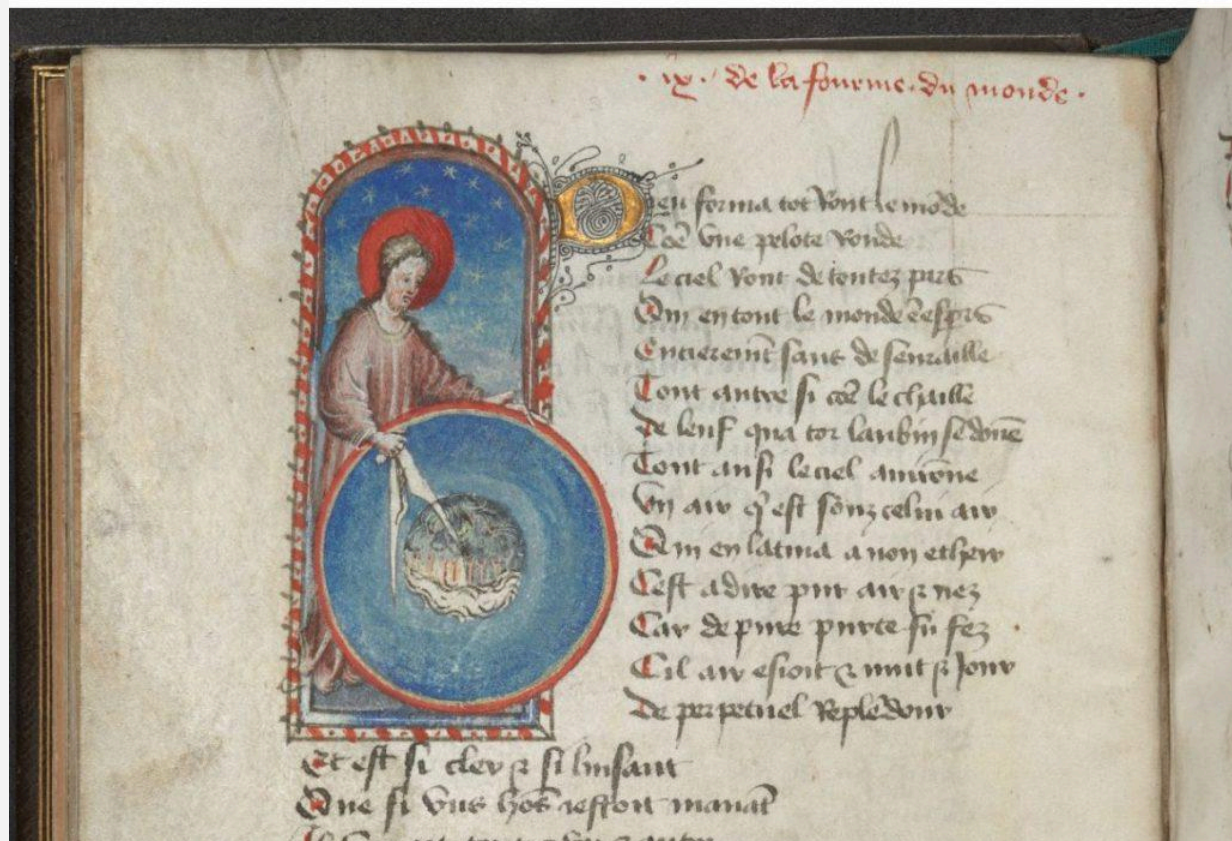 .ix. de la fourme du monde.
Dieu forma tot ront le mōde
Cōe vne pelote ronde
Le ciel ront de toutez pars
Qui en tout le monde ē espars
Entieremt̄ sans defenraille
Tout autresi cōe lechaille
De leuf qua tor laubun se dōne
Tout ausi le ciel auirōne
Vn air qͥ est sonz celui air
Qui en latin a non etheir
Cest a dire pur air & nez
Car de pure purte fu fez
Cil air & nuit & jour
De perpetuel resplēdour
Et est si cler & si luisant
Que si vns hōs estoit manāt